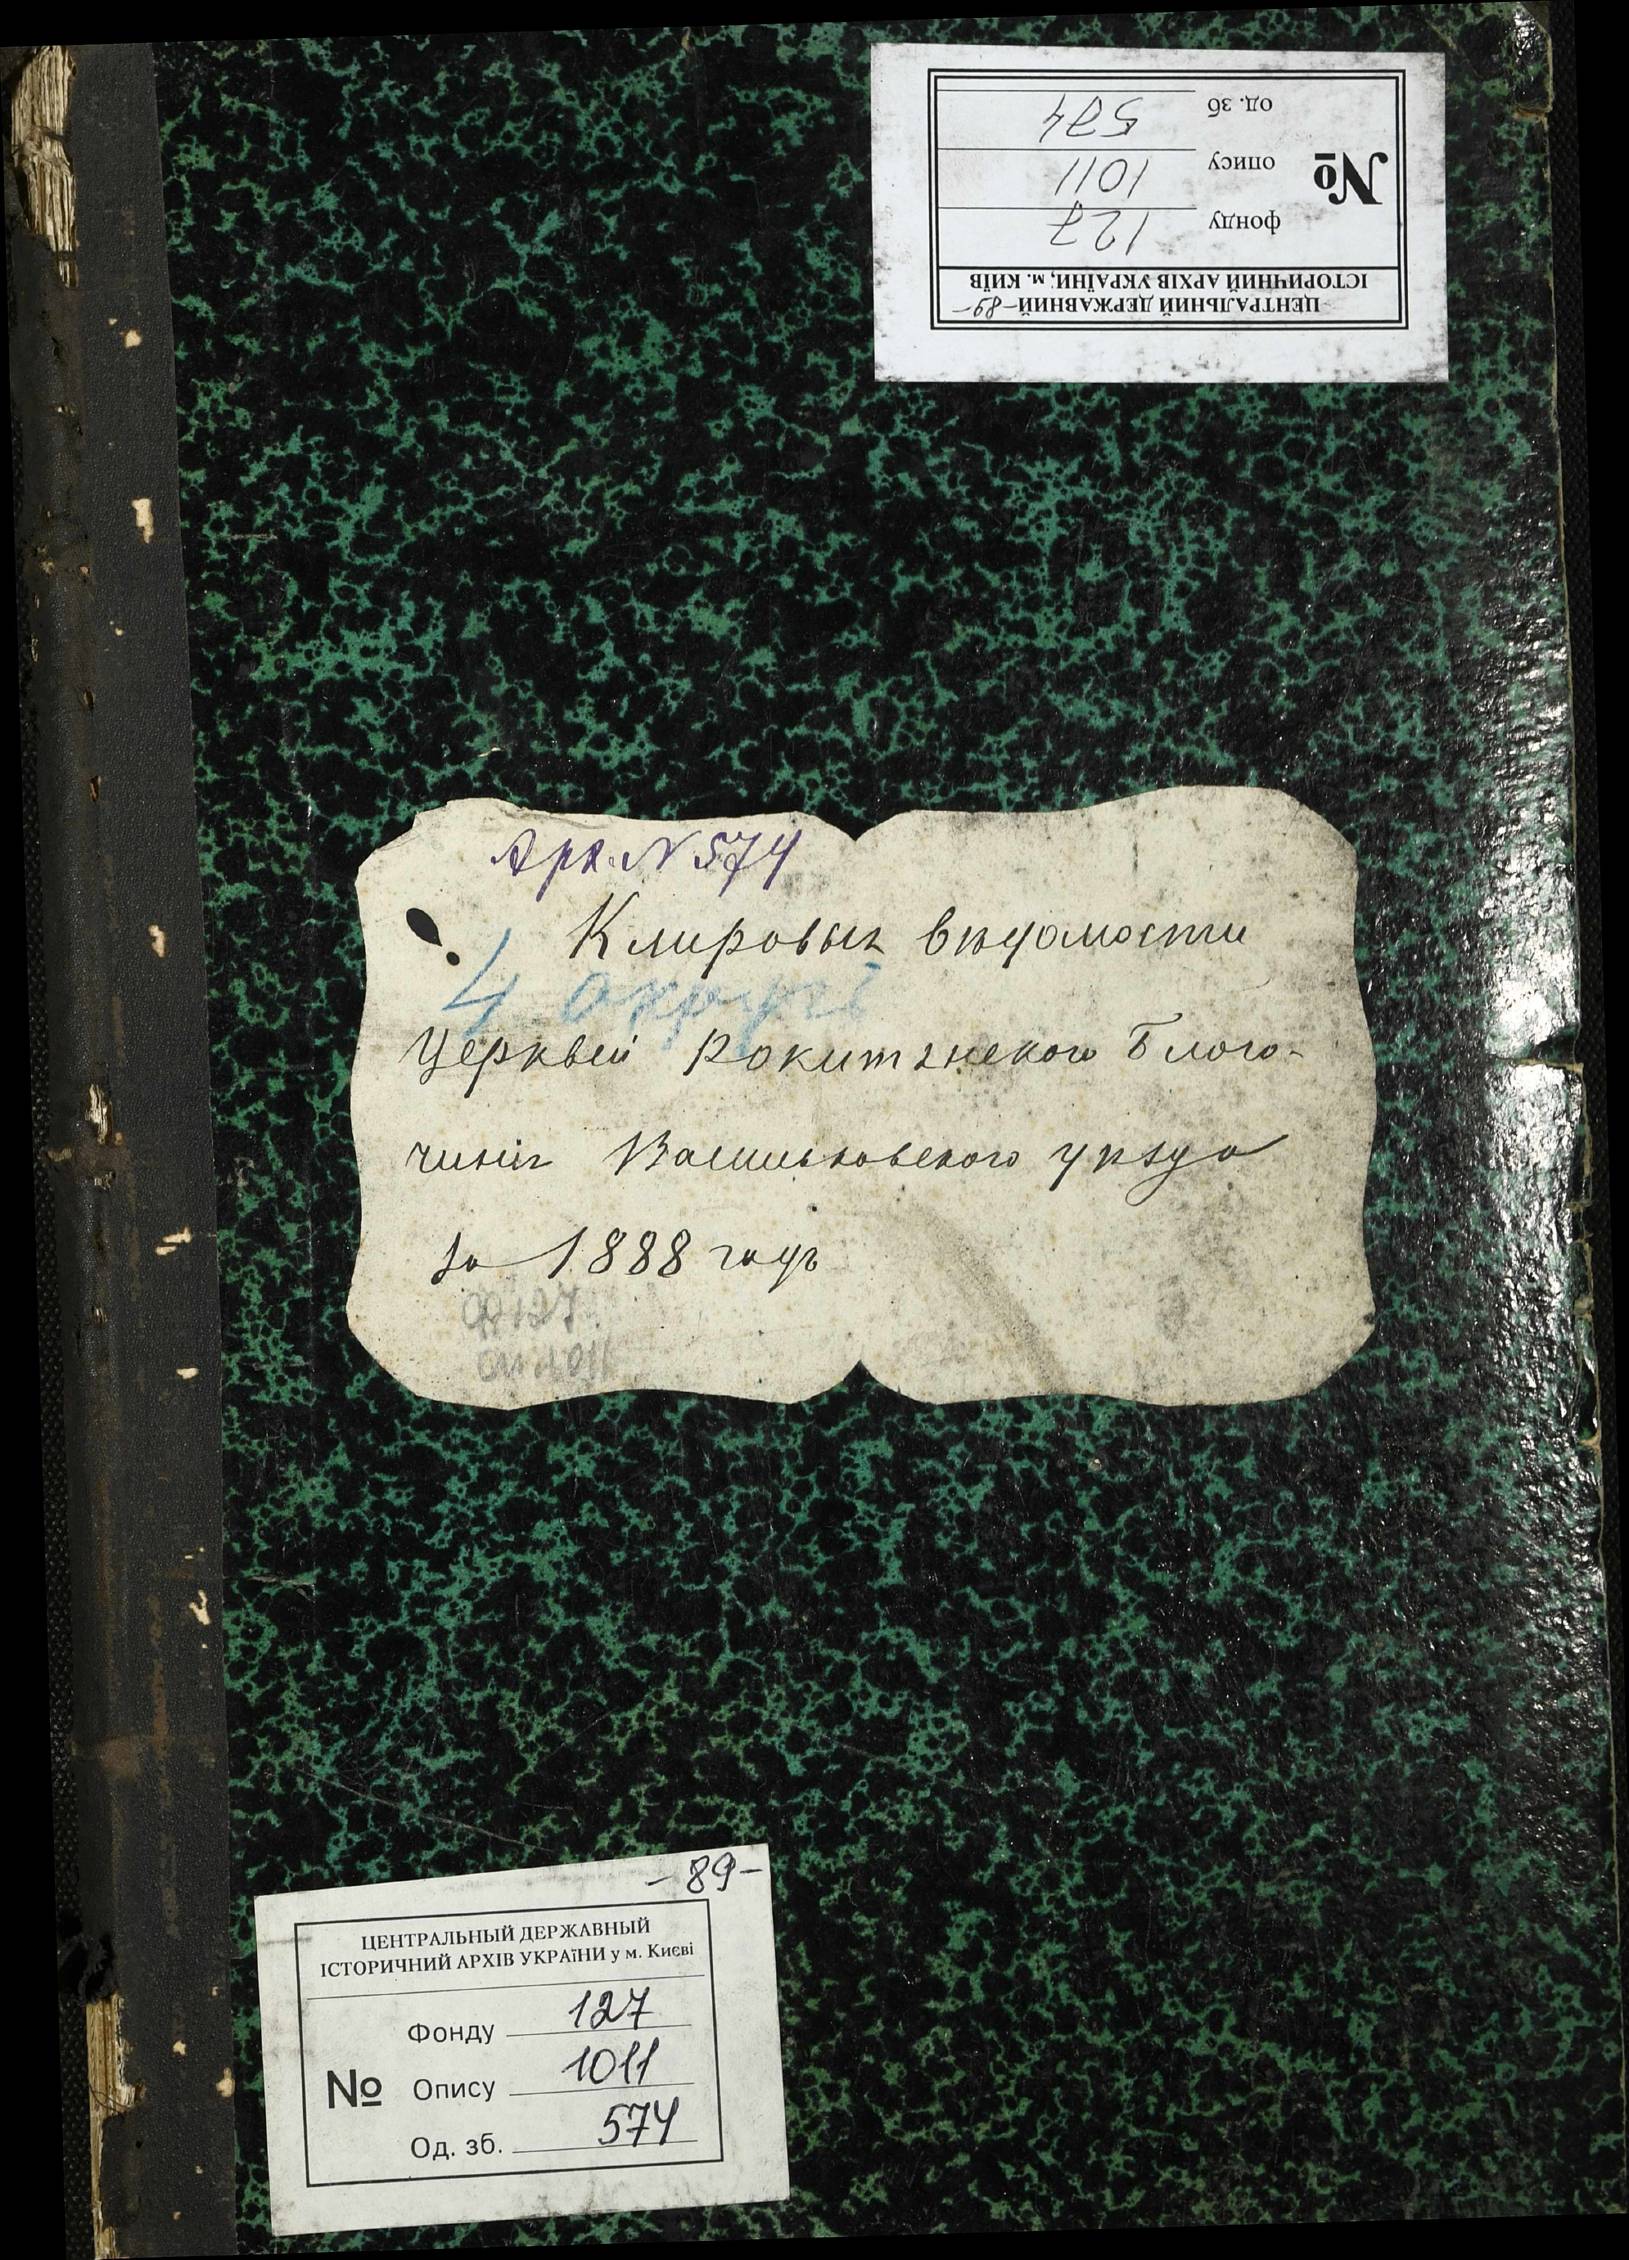 ЦЕНТРАЛЬНИЙ ДЕРЖАВНИЙ -89-
ІСТОРИЧНИЙ АРХІВ УКРАЇНИ, м. КИЇВ
№
фонду 127
опису 1011
од. зб 574
Арх. N 574
Клировыя вѣдомости
4 округъ
Церквей Рокитянскаго Благо-
чинія Васильковскаго уѣзда
за 1888 годъ
ф 127
оп 1011
-89-
ЦЕНТРАЛЬНЫЙ ДЕРЖАВНЫЙ
ІСТОРИЧНИЙ АРХІВ УКРАїНИ у м. Києві
№
Фонду 127
Опису 1011
Од. зб. 574